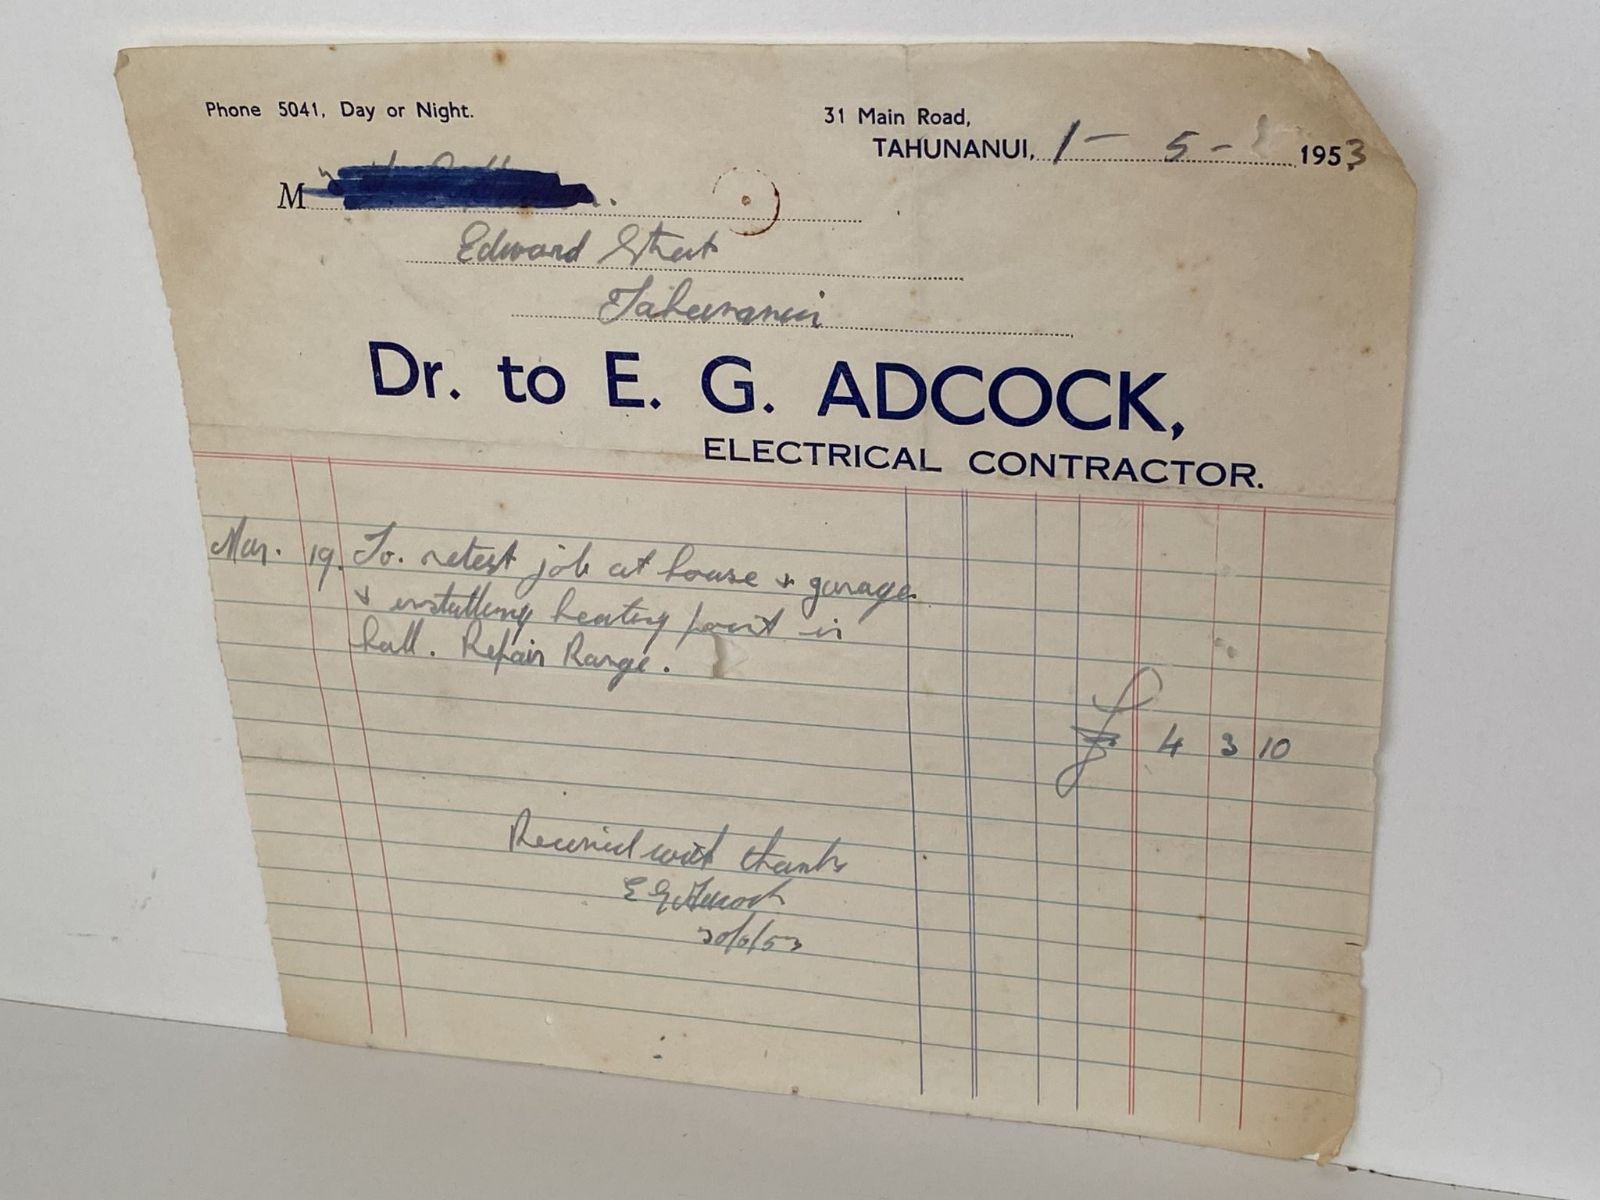 Phone 5041, Day or Night.
31 Main Road,
TAHUNANUI, 1 - 5 - 1953
M
Edward Street
Tahunanui
Dr. to E. G. ADCOCK,
ELECTRICAL CONTRACTOR.
Mar. 19. To. retest job at house & garage
& installing heating point in
hall. Repair Range.
£ 4 3 10
Received with thanks
E G Adcock
/53